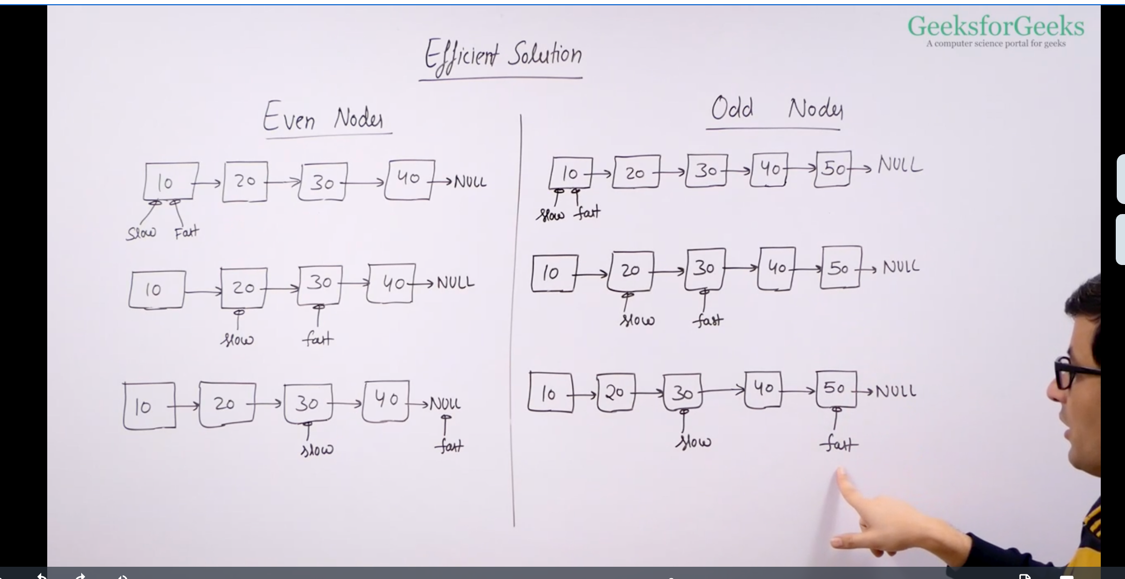 GeeksforGeeks
A computer science portal for geeks
Efficient Solution
Even Nodes
10 20 30 40 NULL
Slow Fast
10 20 30 40 NULL
slow fast
10 20 30 40 NULL
slow fast
Odd Nodes
10 20 30 40 50 NULL
slow fast
10 20 30 40 50 NULL
slow fast
10 20 30 40 50 NULL
slow fast